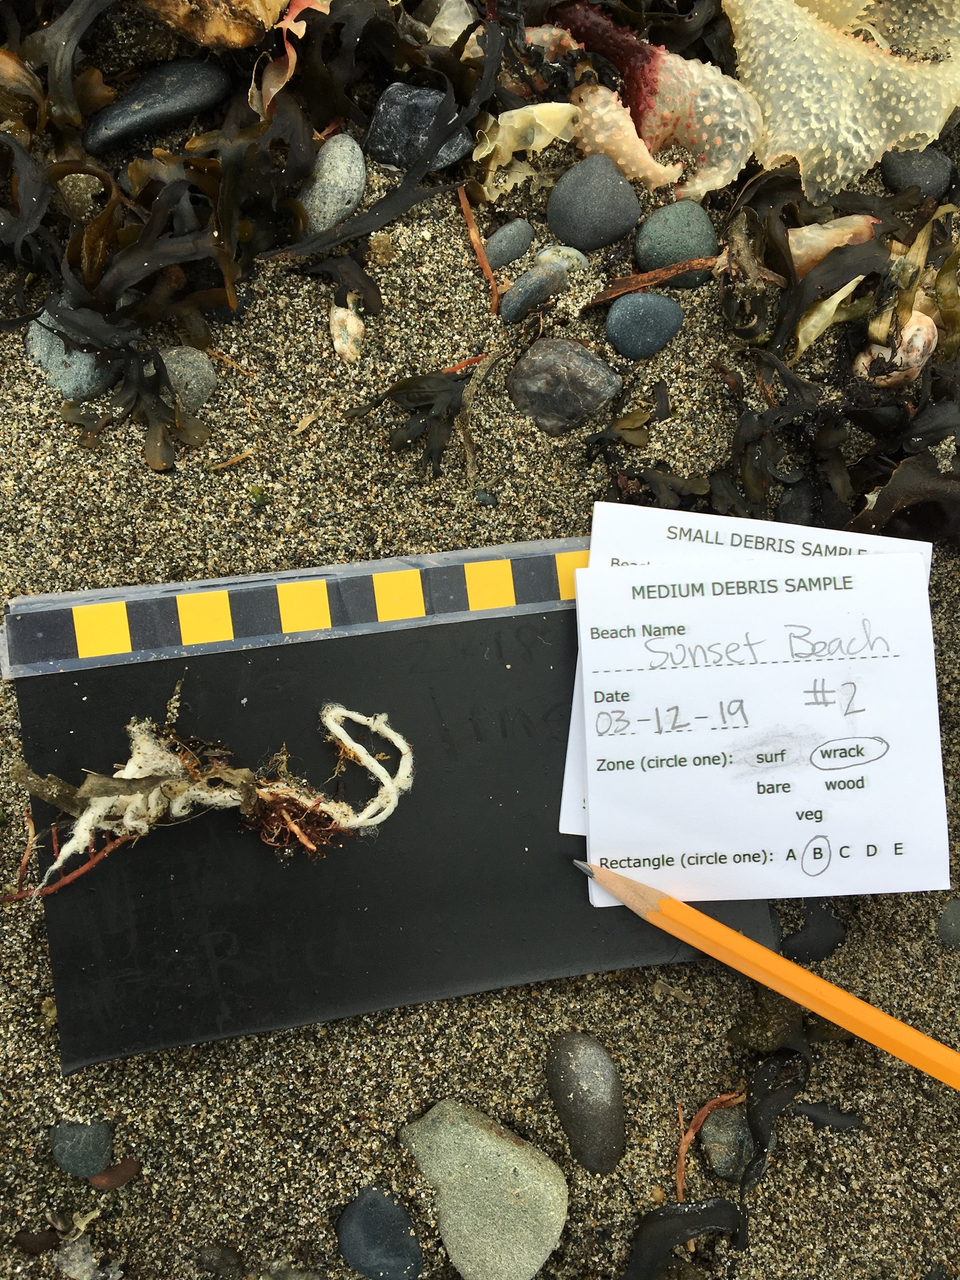 SMALL DEBRIS SAMPLE
MEDIUM DEBRIS SAMPLE
Beach Name
Sunset Beach
Date
#2
03-12-19
Zone (circle one): surf wrack
bare wood
veg
Rectangle (circle one): A B C D E